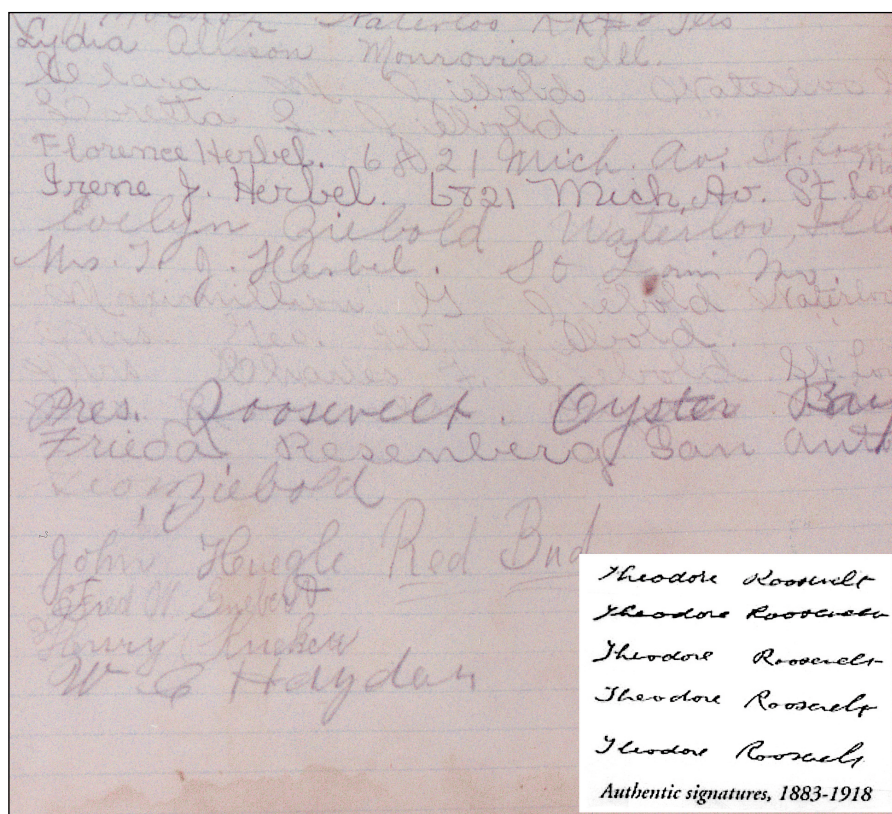 Waterloo Ills
Lydia Allison Monrovia Ill.
Clara M. Ziebold Waterloo
Loretta L. Ziebold
Florence Herbel. 6821 Mich. Av. St. Louis Mo
Irene J. Herbel. 6821 Mich. Av. St. Lou
Evelyn Ziebold Waterloo, Ill
Mrs. T. J. Herbel. St Louis Mo.
Maximillian G Ziebold Waterloo
Mrs. Geo. W. Ziebold.
Mrs Charles F. Ziebold St. Lou
Pres. Roosevelt. Oyster Bay
Frieda Resenberg San Anto
Leo Ziebold
John Huegle Red Bud
Fred W. Guebert
Henry
W C Haydan
Theodore Roosevelt
Theodore Roosevelt
Theodore Roosevelt
Theodore Roosevelt
Theodore Roosevelt
Authentic signatures, 1883-1918